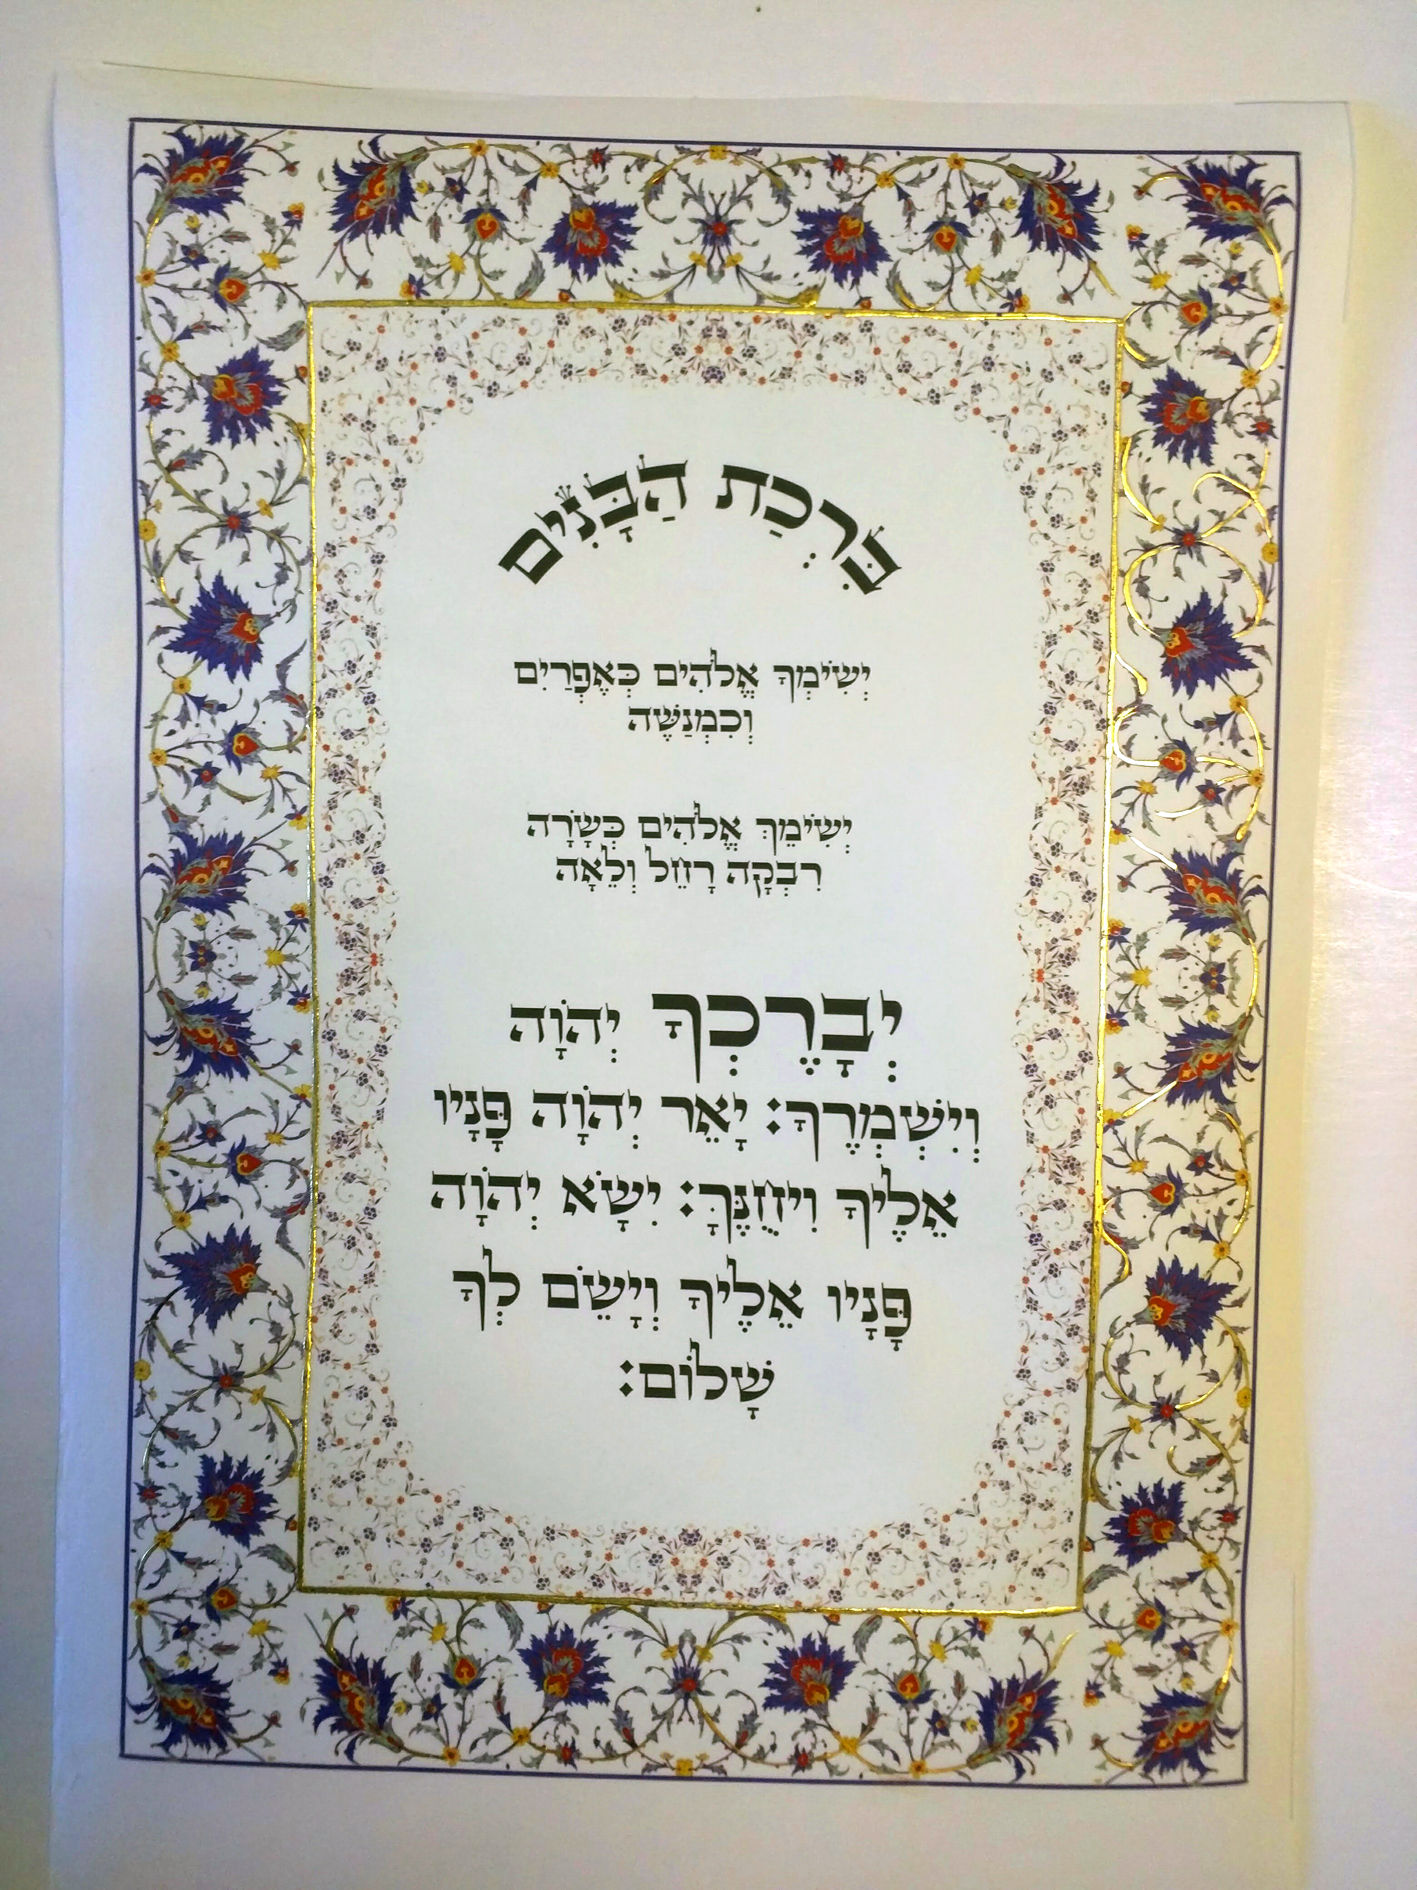 בִּרְכַּת הַבָּנִים
יְשִׂימְךָ אֱלֹהִים כְּאֶפְרַיִם
וְכִמְנַשֶּׁה
יְשִׂימֵךְ אֱלֹהִים כְּשָׂרָה
רִבְקָה רָחֵל וְלֵאָה
יְבָרֶכְךָ יְהֹוָה
וְיִשְׁמְרֶךָ: יָאֵר יְהֹוָה פָּנָיו
אֵלֶיךָ וִיחֻנֶּךָּ: יִשָּׂא יְהֹוָה
פָּנָיו אֵלֶיךָ וְיָשֵׂם לְךָ
שָׁלוֹם: